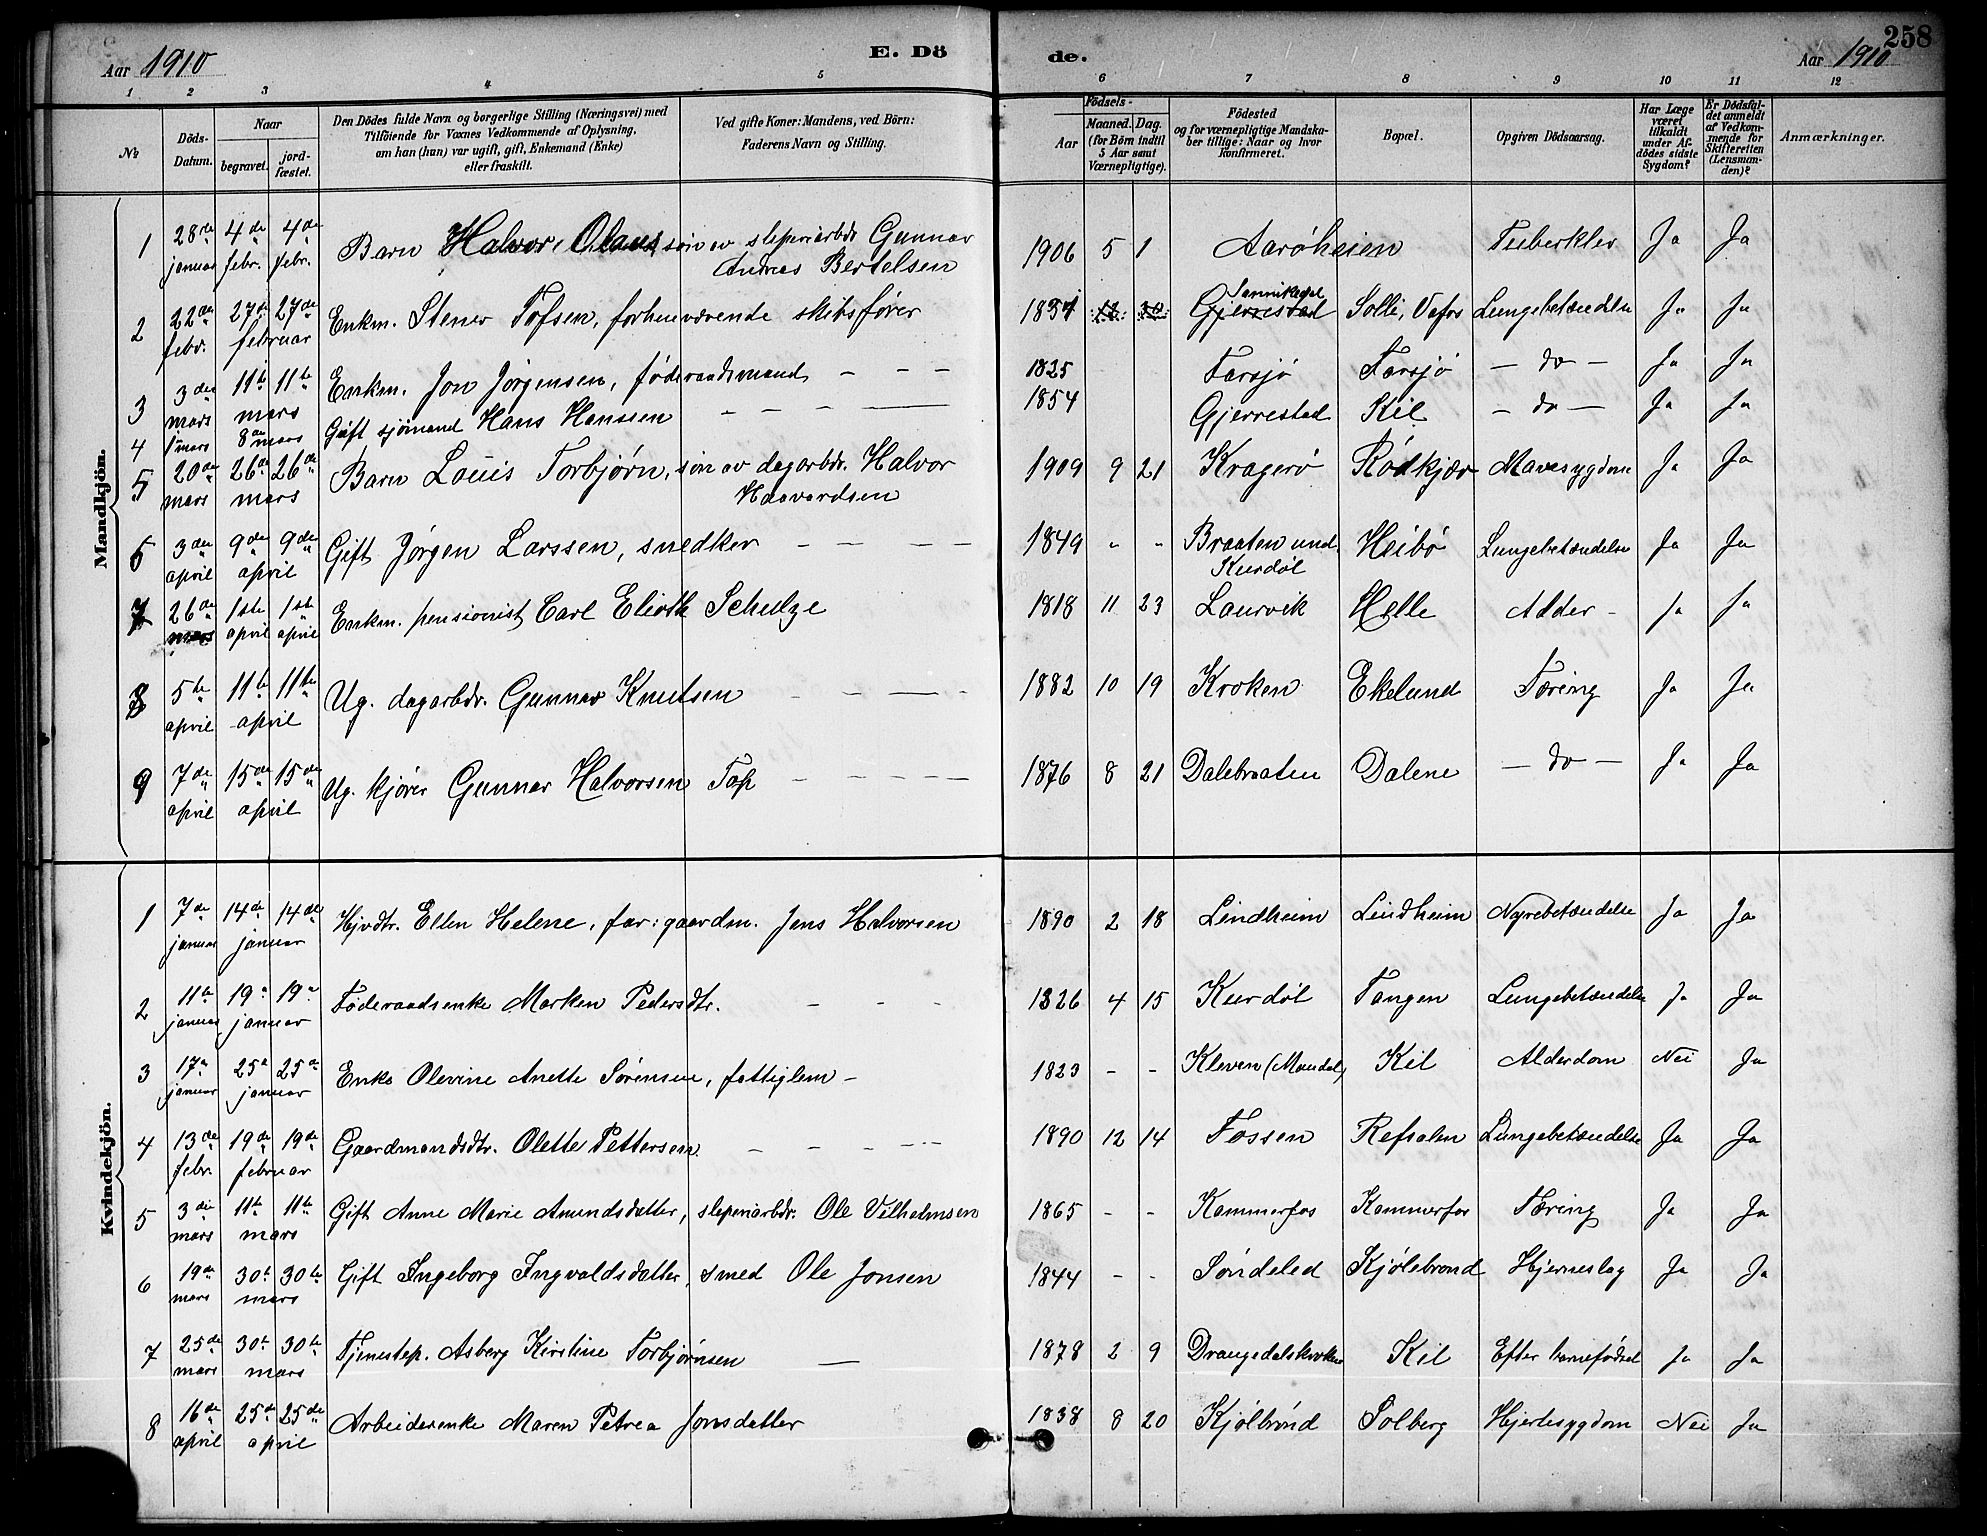 258
Aar 1910
E. Dö
de.
Aar 1910
1 2 3 4 5 6 7 8 9 10 11 12
№
Döds-Datum.
Naar
begravet.
jord-fæstet.
Den Dödes fulde Navn og borgerlige Stilling (Næringsvei) med
Tilföiende for Voxnes Vedkommende af Oplysning,
om han (hun) var ugift, gift, Enkemand (Enke)
eller fraskilt.
Ved gifte Koner: Mandens, ved Börn:
Faderens Navn og Stilling.
Födsels-
Aar
Maaned. Dag.
(for Börn indtil
5 Aar samt
Værnepligtige).
Födested
og for værnepligtige Mandska-
ber tillige: Naar og hvor
konfirmeret.
Bopæl.
Opgiven Dödsaarsag.
Har Læge
været
tilkaldt
under Af-
dödes sidste
Sygdom?
Er Dödsfal-
det anmeldt
af Vedkom-
mende for
Skifteretten
(Lensman-
den)?
Anmærkninger.
Mandkjön.
1 28de januar 4de febr. 4de febr. Barn Halvor Olaus, søn av sleperiarbdr Gunnar Andreas Bertelsen 1906 5 1 Aarøheien Tuberkler Ja Ja
2 22de febr. 27de 27de februar Enkm. Stener Tofsen, forhenværende skibsfører Sannikedal Gjerrestad Solli, Vafos Lungebetændelse Ja Ja
3 3de mars 11te 11te mars Enkm. Jon Jørgensen, føderaadsmand - - - 1825 Farsjø Farsjø - do - Ja Ja
4 1ste mars 8de mars Gift sjømand Hans Hanssen - - - 1854 Gjerrestad Kil - do - Ja Ja
5 20de mars 26de 26de mars Barn Louis Torbjørn, søn av dagarbdr. Halvor Haavardsen 1909 9 21 Kragerø Rødkjær Mavesygdom Ja Ja
6 3de april 9de 9de april Gift Jørgen Larssen, snedker - - - - 1849 " " Braaten und. Kurdøl Heibø Lungebetændelse Ja Ja
7 26de mars 1ste april 1ste april Enkm. pensionist Carl Elioth Schulze 1818 11 23 Laurvik Helle Alder - Ja Ja
8 5te april 11te 11te april Ug. dagarbdr. Gunnar Knutsen - - - - 1882 10 19 Kroken Ekelund Tæring Ja Ja
9 7de april 15de 15de april Ug. kjører Gunnar Halvorsen Tap - - - - 1876 8 21 Dalebraaten Dalene - do - Ja Ja
Kvindekjön.
1 7de januar 14de 14de januar Hjvdtr. Ellen Helene, far: gaardm. Jens Halvorsen 1890 2 18 Lindheim Lindheim Nyrebetændelse Ja Ja
2 11te januar 19de 19de januar Føderaadsenke Marken Pedersdtr. - - - 1826 4 15 Kurdøl Tangen Lungebetændelse Ja Ja
3 17de januar 25de 25de januar Enke Olevine Anette Sørensen, fattiglem - 1823 - - Kleven (Mandal) Kil Alderdom Nei Ja
4 13de febr. 19de 19de februar Gaardmandsdtr. Olette Pettersen - - - - 1890 12 14 Fossen Refsalen Lungebetændelse Ja Ja
5 3die mars 11te 11te mars Gift Anne Marie Amundsdatter, sleperiarbdr. Ole Vilhelmsen 1865 - - Kammerfos Kammerfos Tæring Ja Ja
6 19de mars 30te 30te mars Gift Ingeborg Ingvaldsdatter, smed Ole Jonsen 1844 - - Søndeled Kjølebrønd Hjerneslag Ja Ja
7 25de mars 30te 30te mars Tjenestep. Asberg Kirstine Torbjørnsen - 1878 2 9 Drangedalskroken Kil Efter barnefødsel Ja Ja
8 16de april 25de 25de april Arbeiderenke Maren Petrea Jonsdatter 1838 8 20 Kjølbrønd Solberg Hjertesygdom Nei Ja